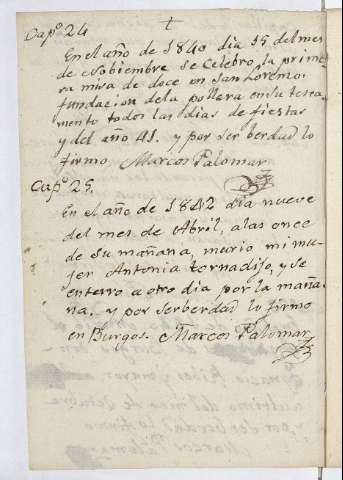 Capº 24
En el año de 1840 dia 15 del mes
de Nobiembre se Celebro la prime
ra misa de doce en San Lorenzo.
fundacion dela pollera en su testa
mento todos los dias de fiestas
y del año 41. y por ser berdad lo
firmo Marcos Palomar
Capº 25.
En el año de 1842 dia nueve
del mes de Abril, alas once
de su mañana, murio mi mu
jer Antonia tornadijo, y se
enterro a otro dia por la maña
na, y por ser berdad lo firmo
en Burgos. Marcos Palomar